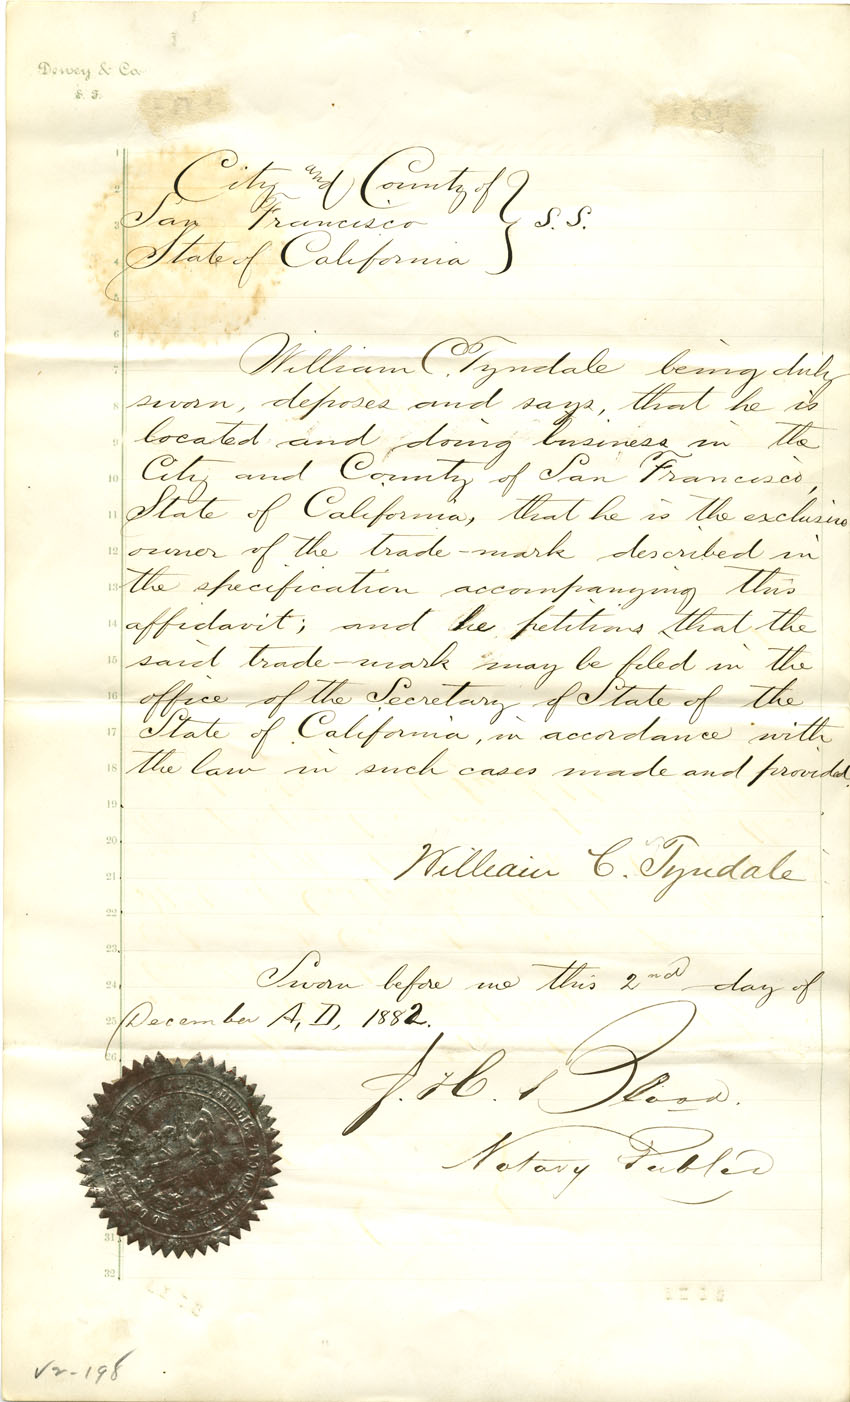 Dewey & Co.
S. F.
City and County of
San Francisco } S.S.
State of California
William C. Tyndale being duly
sworn, deposes and says, that he is
located and doing business in the
City and County of San Francisco,
State of California, that he is the exclusive
owner of the trade-mark described in
the specification accompanying this
affidavit; and he petitions that the
said trade-mark may be filed in the
office of the Secretary of State of the
State of California, in accordance with
the law in such cases made and provided.
William C. Tyndale
Sworn before me this 2nd day of
December A, D, 1882.
J. H. Blood.
Notary Public
V2-198